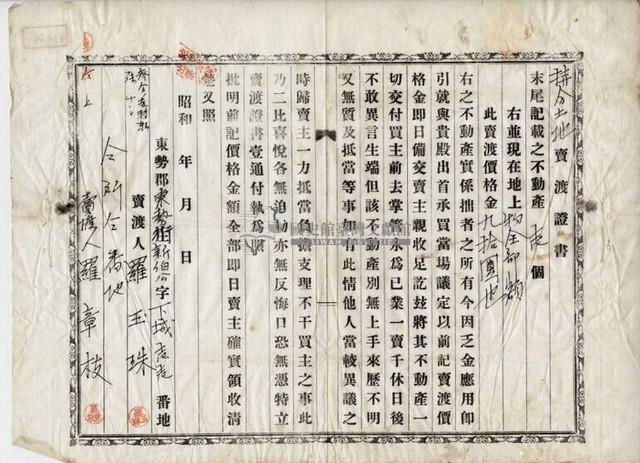 持分土地賣渡證書
末尾記載之不動產 壱 個
右並現在地上物全部
此賣渡價格金九拾圓也
右之不動產實係拙者之所有今因乏金應用卽
引就與貴殿出首承買當場議定以前記賣渡價
格金卽日備交賣主親收足訖玆將其不動產一
切交付買主前去掌管永爲己業一賣千休日後
不敢異言生端但該不動產別無上手來歷不明
又無質及抵當等事如有此情他人當較異議之
時歸賣主一力抵當負擔支理不干買主之事此
乃二比喜悅各無迫勒亦無反悔口恐無憑特立
賣渡證書壹通付執爲照
批明前記價格金額全部卽日賣主確實領收清
楚又照
昭和 年 月 日
東勢郡東勢街新伯公字下城 番地
賣渡人 羅玉珠
仝所仝番地
賣渡人 羅章枝
國史館臺灣文獻館